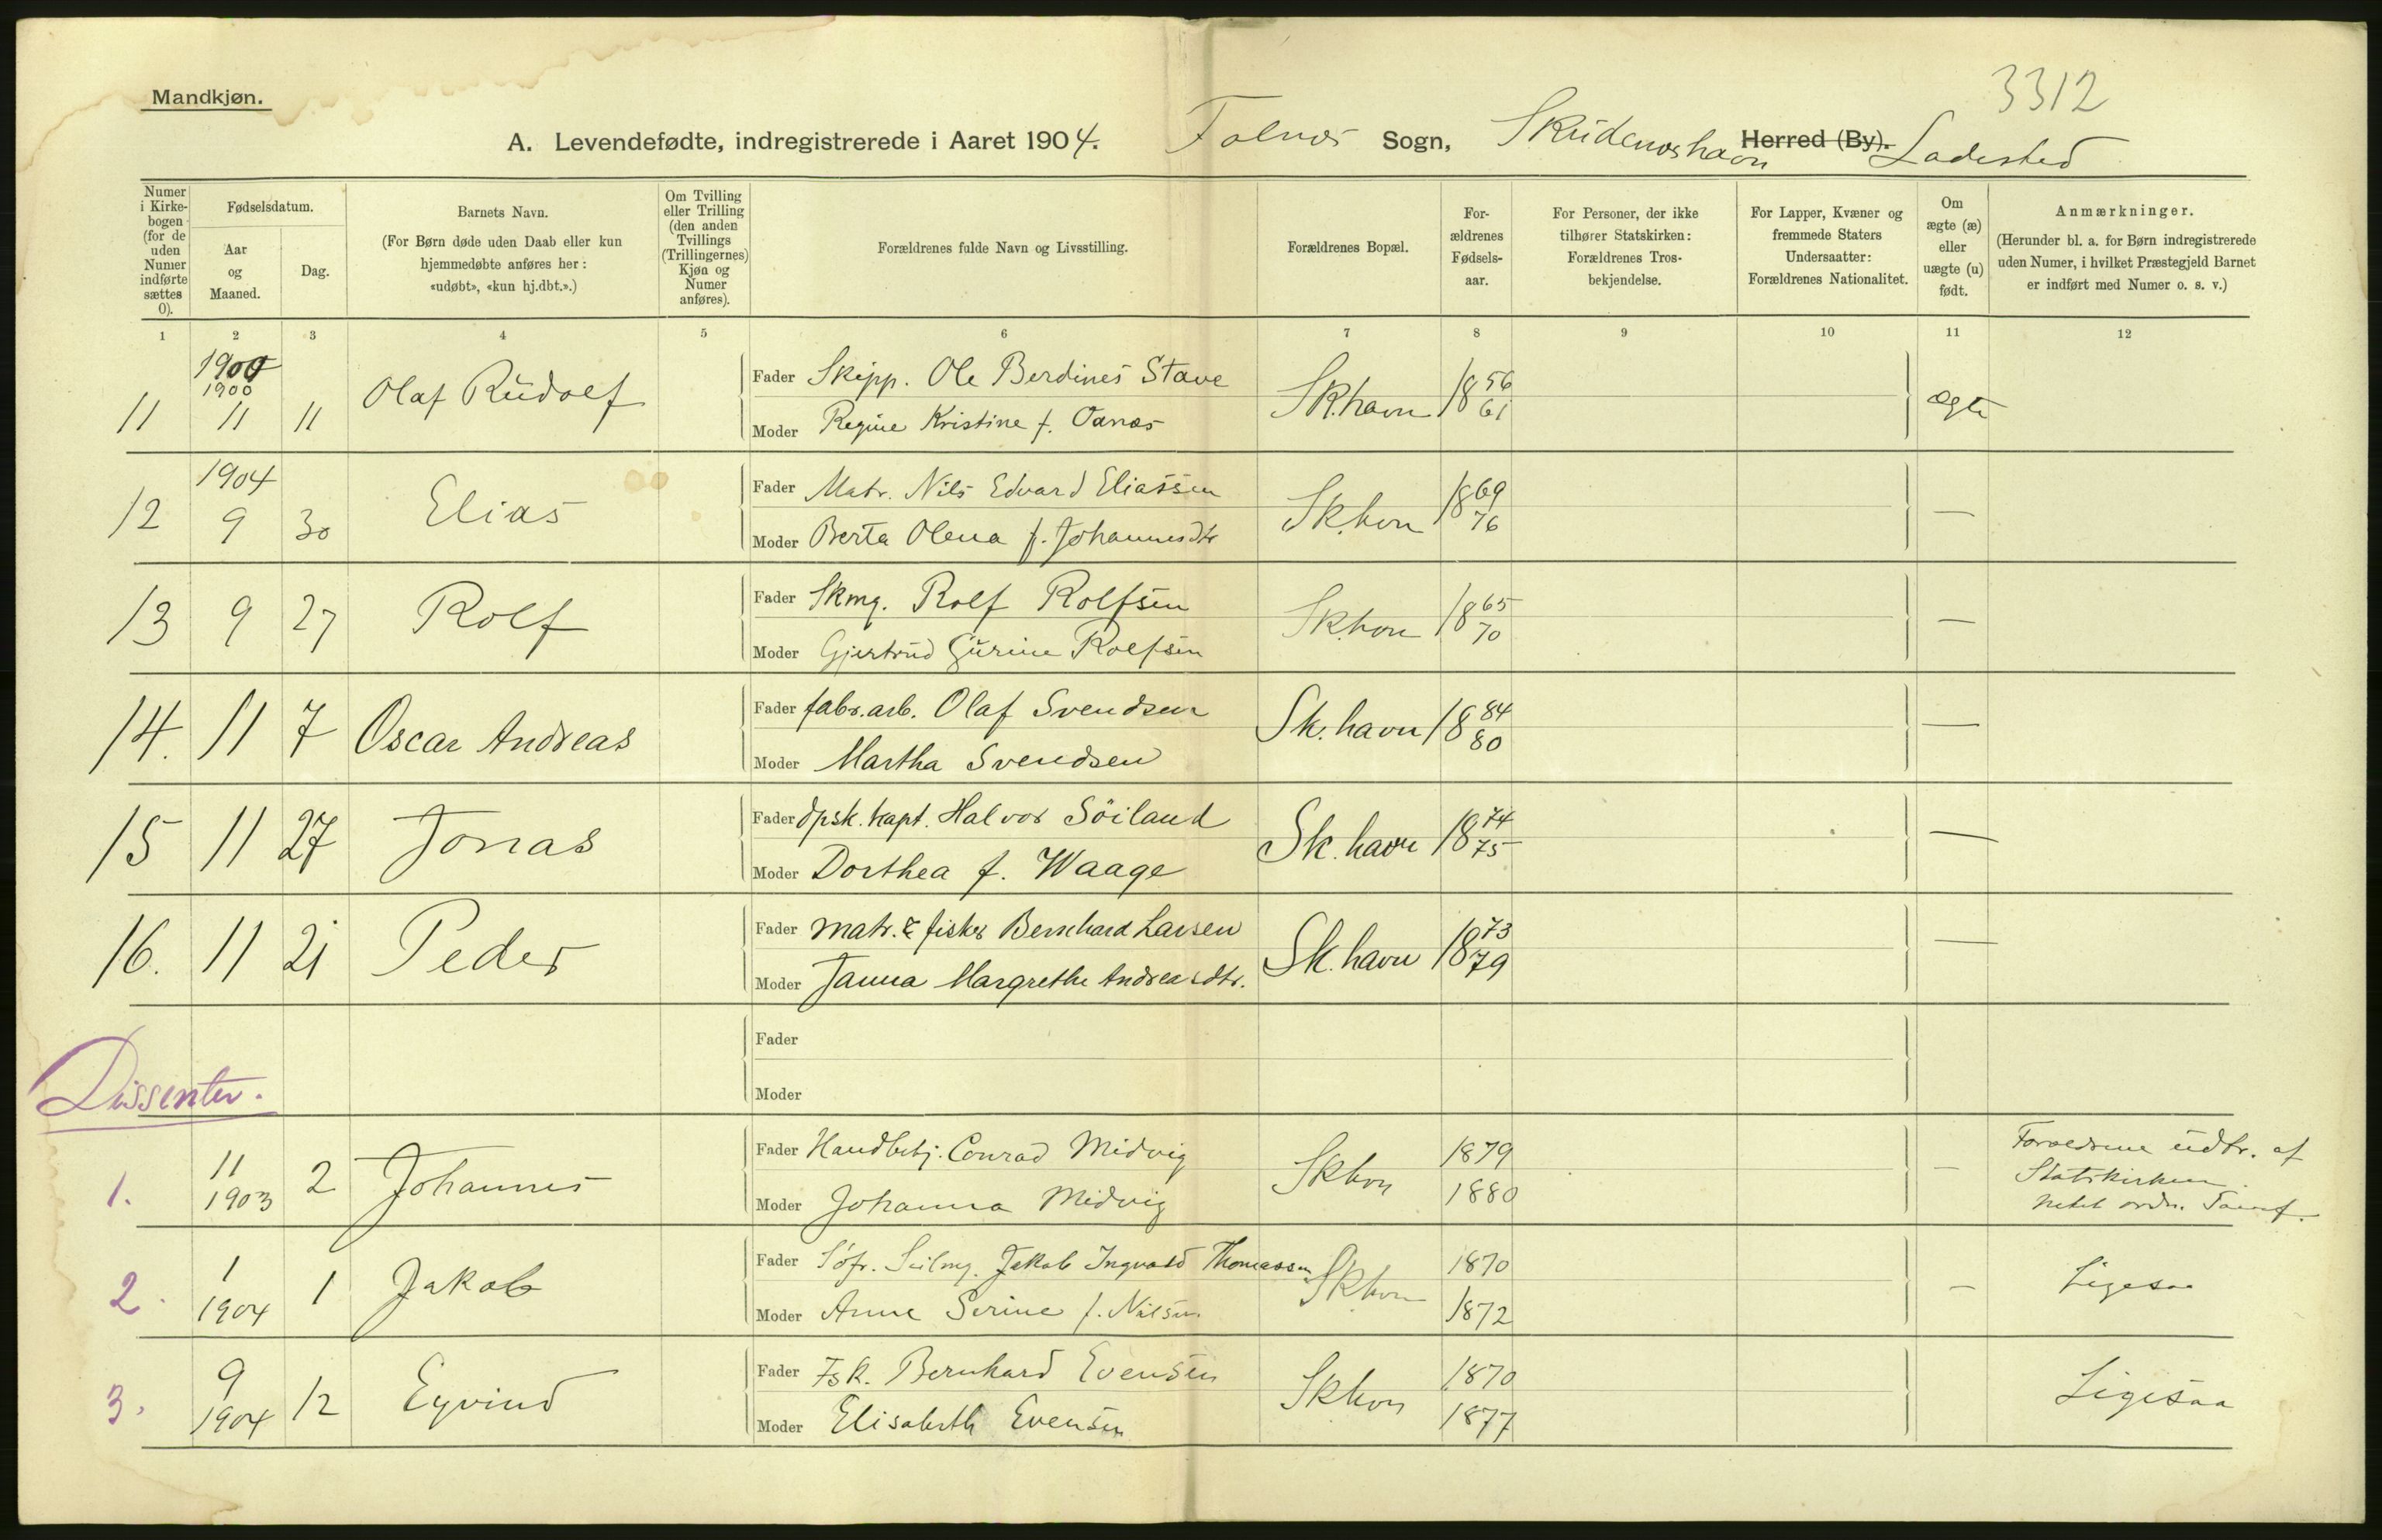 3312
Mandkjøn.
A. Levendefødte, indregistrerede i Aaret 1904. Falnæs Sogn, Skudenæshavn Herred (By). Ladested
Numer i Kirkebogen (for de uden Numer indførte sættes 0).
Fødselsdatum.
Aar og Maaned.
Dag.
Barnets Navn.
(For Børn døde uden Daab eller kun hjemmedøbte anføres her: «udøbt», «kun hj.dbt.».)
Om Tvilling eller Trilling (den anden Tvillings (Trillingernes) Kjøn og Numer anføres).
Forældrenes fulde Navn og Livsstilling.
Forældrenes Bopæl.
Forældrenes Fødselsaar.
For Personer, der ikke tilhører Statskirken: Forældrenes Trosbekjendelse.
For Lapper, Kvæner og fremmede Staters Undersaatter: Forældrenes Nationalitet.
Om ægte (æ) eller uægte (u) født.
Anmærkninger.
(Herunder bl. a. for Børn indregistrerede uden Numer, i hvilket Præstegjeld Barnet er indført med Numer o. s. v.)
1 2 3 4 5 6 7 8 9 10 11 12
1900
1900
11 11 11 Olaf Rudolf
Fader Skipp. Ole Berdines Stave
Moder Regine Kristine f. Oanæs
Sk.havn 1856 61 ægte
1904
12 9 30 Elias
Fader Matr. Nils Edvard Eliassen
Moder Berta Olena f. Johannesdtr
Sk.hvn 1869 76 —
13 9 27 Rolf
Fader Skmg. Rolf Rolfsen
Moder Gjertrud Gurine Rolfsen
Sk.hvn 1865 70 —
14. 11 7 Oscar Andreas
Fader fabr.arb. Olaf Svendsen
Moder Martha Svendsen
Sk. havn 1884 80 —
15 11 27 Jonas
Fader dpsk. kapt. Halvor Söiland
Moder Dorthea f. Waage
Sk. havn 1874 75 —
16. 11 21 Peder
Fader matr. & fisker Bernhard Larsen
Moder Janna Margrethe Andreasdtr.
Sk. havn 1873 79 —
Fader
Moder
Dissenter.
1. 11 1903 2 Johannes
Fader Handbetj. Conrad Midvig
Moder Johanna Midvig
Skhvn 1879 1880 —
Forældrene udtr. af
Statskirken.
2. 1 1904 1 Jakob
Fader Söfr. Seilmg. Jakob Ingvald Thomassen
Moder Anne Serine f. Nilsen
Skhvn 1870 1872 —
Ligesaa
3. 9 1904 12 Eyvind
Fader Fsk. Bernhard Evensen
Moder Elisabeth Evensen
Skhvn 1870 1877
Ligesaa